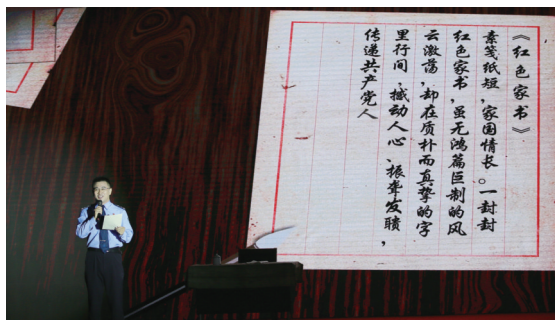 《红色家书》
素笺纸短，家国情长。一封封
红色家书，虽无鸿篇巨制的风
云激荡，却在质朴而真挚的字
里行间，撼动人心、振聋发聩，
传递共产党人